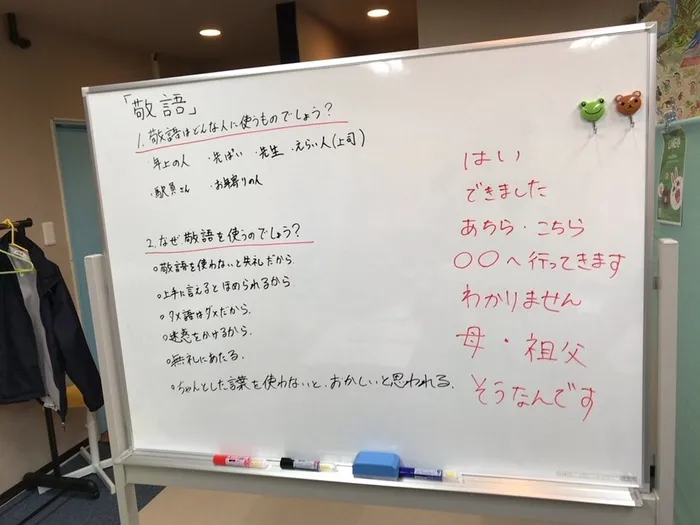 「敬語」
1. 敬語はどんな人に使うものでしょう?
・年上の人 ・先ぱい ・先生 ・えらい人(上司)
・駅員さん ・お年寄りの人
2. なぜ敬語を使うのでしょう?
○敬語を使わないと失礼だから
○上手に言えるとほめられるから
○タメ語はダメだから.
○迷惑をかけるから.
○無礼にあたる.
○ちゃんとした言葉を使わないと、おかしいと思われる.
はい
できました
あちら・こちら
○○へ行ってきます
わかりません
母・祖父
そうなんです